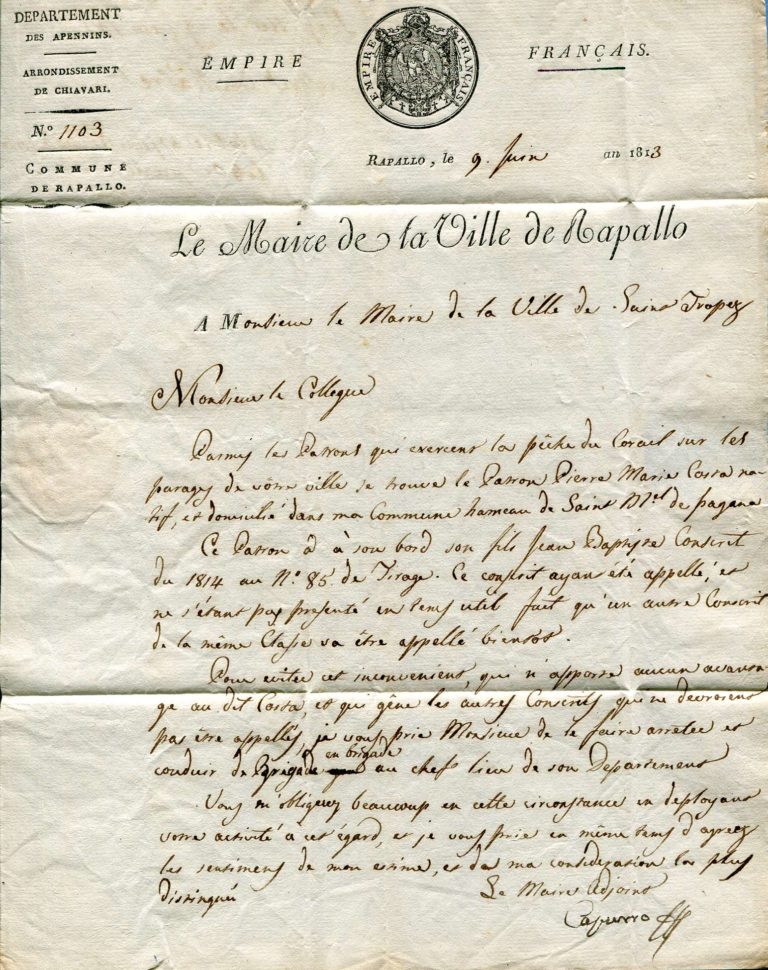 DEPARTEMENT
DES APENNINS.
ARRONDISSEMENT
DE CHIAVARI.
N.º 1103
COMMUNE
DE RAPALLO.
EMPIRE
EMPIRE FRANÇAIS
FRANÇAIS.
RAPALLO, le 9. Juin an 1813
Le Maire de la Ville de Rapallo
A Monsieur le Maire de la Ville de Saint Tropez
Monsieur le Collegue
Parmis les Patrons qui exercent la pêche du Corail sur les
parages de vôtre ville se trouve le Patron Pierre Marie Costa na-
tif, et domicilié dans ma Commune hameau de Saint M.el de pagana
Ce Patron à à son bord son fils Jean Baptiste Conscrit
du 1814 au N.º 85 de Tirage. Ce conscrit ayant été appellé, et
ne s'étant pas presenté en tems util fait qu'un autre Conscrit
de la même Classe va être appellé bientôt.
Pour eviter cet inconvenient, qui n'apporte aucun avanta-
ge au dit Costa, et qui gêne les autres Conscrits qui ne devroient
pas être appellés, je vous prie Monsieur de le faire arreter et
conduir de Brigade en brigade au chef lieu de son Departement
Vous m'obligerez beaucoup en cette circonstance en deployant
votre activité à cet égard, et je vous prie en même tems d'agreez
les sentimens de mon estime, et de ma consideration la plus
distinguée
Le Maire Adjoint
Capurro